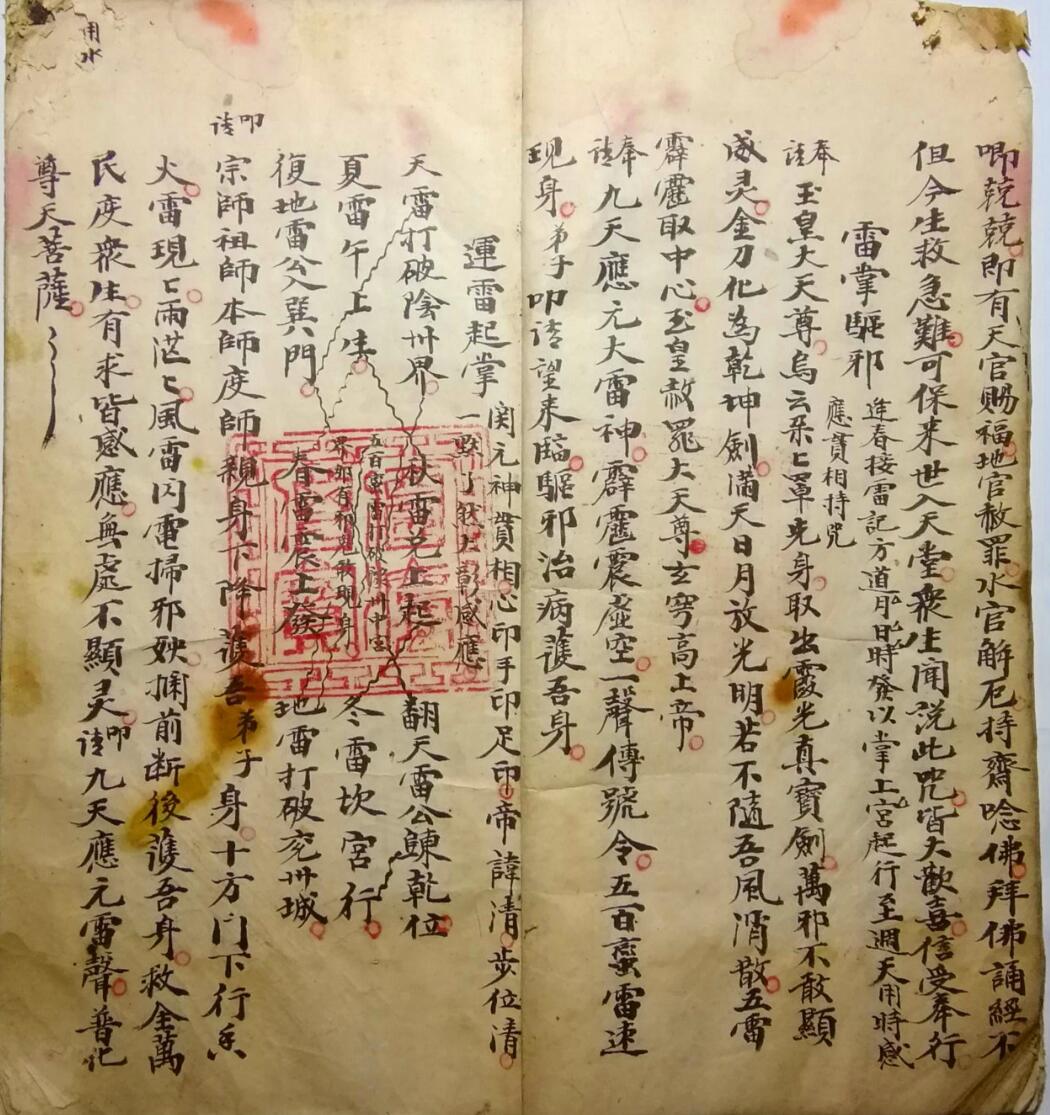 唧兢兢即有天官賜福地官赦罪水官解厄持齋唸佛拜佛誦經不
但今生救急難可保來世入天堂衆生聞说此咒皆大歡喜信受奉行
雷掌驅邪
逢春接雷記方道月日時發以掌上宮起行至週天用時感
應實相持咒
奉请玉皇大天尊烏云朵匕罩光身取出霞光真寶劍萬邪不敢顯
威灵金刀化為乾坤劍滿天日月放光明若不隨吾風消散五雷
霹靂取中心玉皇赦罪大天尊玄穹高上帝
奉请九天應元大雷神霹靂震虛空一聲傳號令五百蛮雷速
現身弟子叩请望来臨驅邪治病護吾身
運雷起掌
関元神貫相心印手印足印帝諱清步位清
一點了然大彰感應
天雷打破陰州界秋雷兑上起翻天雷公鎮乾位
夏雷午上生
冬雷坎宮行
復地雷公巽門春雷震上發地雷打破兖州城
叩请宗師祖師本師度師親身下降護吾弟子身十方门下行香
火雷現匕雨茫匕風雷闪電掃邪殃攔前断後護吾身救全萬
民度衆生有求皆感應無處不顯灵叩请九天應元雷聲普化
尊天菩薩
用水